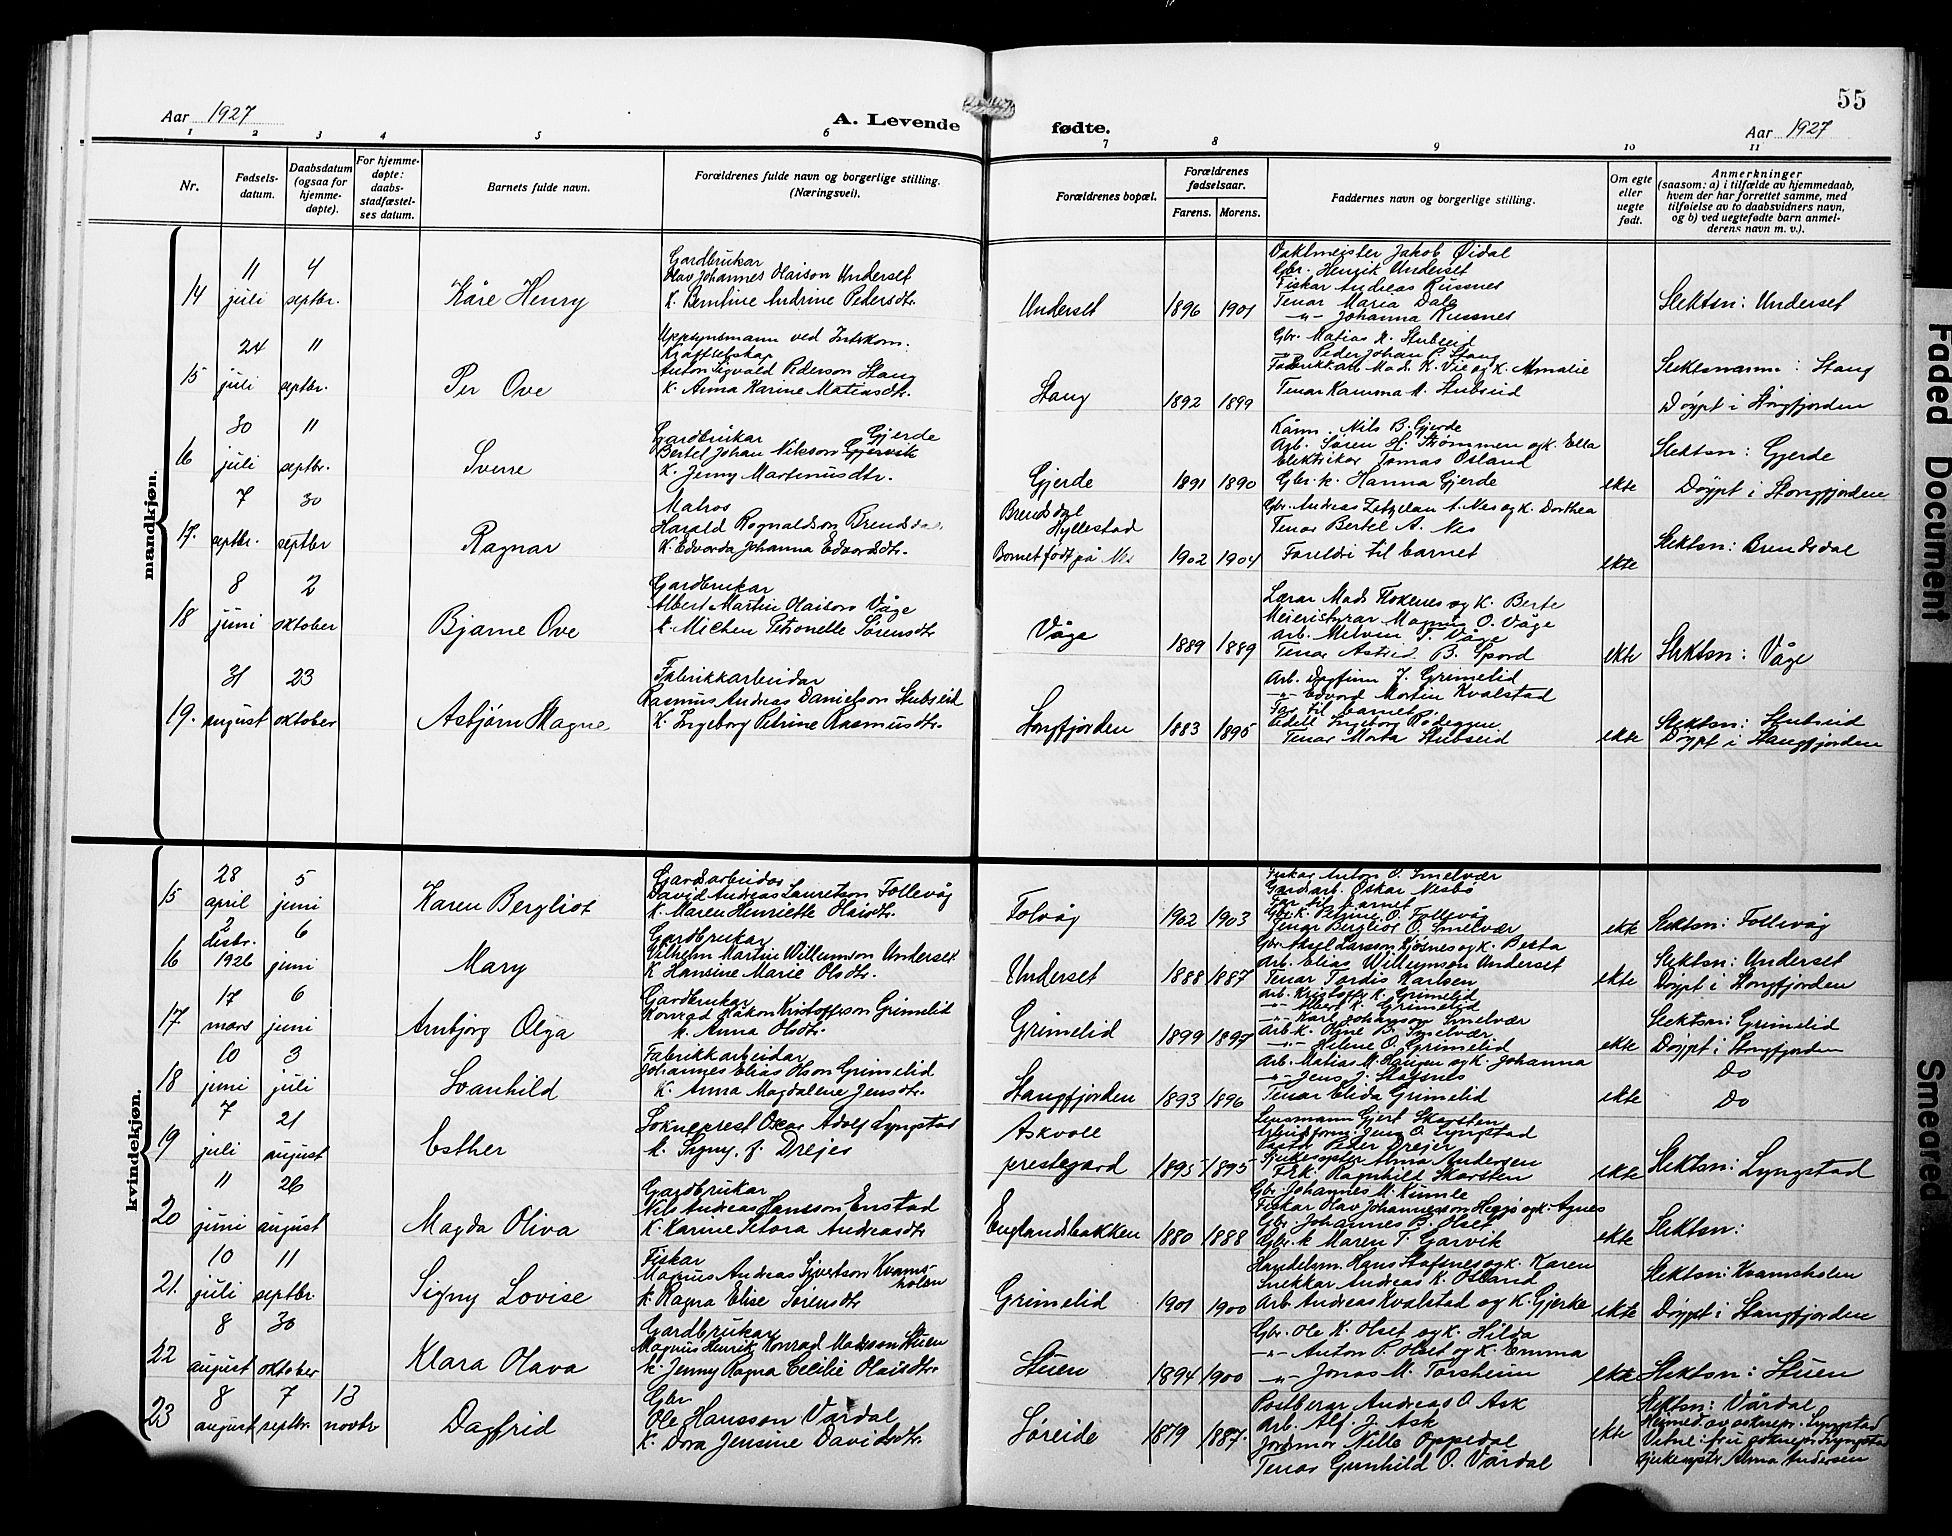 55
Aar 1927
A. Levende fødte.
Aar 1927
1 2 3 4 5 6 7 8 9 10 11
Nr.
Fødsels-
datum.
Daabsdatum
(ogsaa for
hjemme-
døpte).
For hjemme-
døpte:
daabs-
stadfæstel-
ses datum.
Barnets fulde navn.
Forældrenes fulde navn og borgerlige stilling.
(Næringsvei).
Forældrenes bopæl.
Forældrenes
fødselsaar.
Farens. Morens.
Faddernes navn og borgerlige stilling.
Om egte
eller
uegte
født.
Anmerkninger
(saasom: a) i tilfælde av hjemmedaab,
hvem der har forrettet samme, med
tilføielse av to daabsvidners navn,
og b) ved uegtefødte barn anmel-
derens navn m. v.).
mandkjøn.
14
11
juli
4
septbr.
Kåre Henry
Gardbrukar
Olav Johannes Olaison Underset
K. Berntine Andrine Pedersdtr.
Underset
1896 1901
Vaktmeister Jakob Øidal
Gbr. Henrik Underset
Fiskar Andreas Russnes
Tenar Maria Dale
-"- Johanna Russnes
Slektsn: Underset
15
24
juli
11
septbr.
Per Ove
Uppsynsmann ved Interkom.
Kraftselskap
Anton Sigvald Pederson Stang
K. Anna Karine Matiasdtr.
Stang
1892 1899
Gbr. Matias K. Stubseid
-"- Peder Johan P. Stang
Fabrikkarb. Mads K. Vie og K. Amalie
Tenar Kamma M. Stubseid
Slektsnamn: Stang
Døypt i Stongfjorden
16
30
juli
11
septbr.
Sverre
Gardbrukar Gjerde
Bertel Johan Nilsson Gjervik
K. Jenny Martinusdtr.
Gjerde
1891 1890
Nils B. Gjerde
Arb. Søren H. Strømmen og K. Ella
Elektrikar Tomas Osland
Gbr. k. Hanna Gjerde
ekte
Slektsn: Gjerde
Døypt i Stongfjorden
17.
7
septbr.
30
septbr
Ragnar
Matros
Harald Rognaldson Brendsdal
K. Edvarda Johanna Edvardsdtr.
Brendsdal
Hyllestad
Bornet født på Nes
1902 1904
Gbr. Andreas A. Nes og K. Dorthea
Tenar Bertel A. Nes
Foreldri til barnet
ekte
Slektsn: Brendsdal
18
8
juni
2
oktober
Bjarne Ove
Gardbrukar
Albert Martin Olaison Våge
K. Michen Petronelle Sørensdtr
Våge
1889 1889
Lærar Mads Flokenes og K. Berte
Meieristyrar Magnus O. Våge
Arb. Melvin T. Våge
Tenar Astrid B. Spord
ekte
Slektsn: Våge
19.
31
august
23
oktober
Asbjørn Magne
Fabrikkarbeidar
Rasmus Andreas Danielson Stubseid
K. Ingeborg Petrine Rasmusdtr.
Stongfjorden
1883 1895
Arb. Dagfinn J. Grimelid
-"- Edvard Martin Kvalstad
Far til barnet.
Ingeborg Rødeggen
Tenar Marta Stubseid
ekte
Slektsn: Stubseid
Døypt i Stangfjorden
kvindekjøn.
15
28
april
5
juni
Karen Bergliot
Gardsarbeidar
David Andreas Lauretson Follevåg
K. Maren Henriette Olaisdtr.
Folvåg
1902 1903
Fiskar Anton O. Smelvær
Gardsarb. Oskar Nesbø
Far til barnet
Gbr. K. Petrine O. Follevåg
Tenar Bergliot O. Smelvær
ekte
Slektsn: Follevåg
16
2
desbr.
1926
6
juni
Mary
Gardbrukar
Vilhelm Martin Willumson Underset
K. Hansine Marie Olsdtr.
Underset
1888 1887
Gbr. Aksel Larsson Kjøsnes og K. Berta
Arb. Elias Willumson Underset
Tenar Tordis Karlsen
ekte
Slektsn: Underset
Døypt i Stongfjorden
17
17
mars
6
juni
Arnbjørg Olga
Gardbrukar
Konrad Håkon Kristofferson Grimelid
K. Anna Olsdtr.
Grimelid
1899 1897
Arb. Kristoffer K. Grimelid
-"- Albert K. Grimelid
-"- Karl Johanson Smelvær
Arb. K. Oline B. Smelvær
-"- Helene O. Grimelid
ekte
Slektsn: Grimelid
Døypt i Stongfjorden
18
10
juni
3
juli
Svanhild
Fabrikkarbeidar
Johannes Elias Olson Grimelid
K. Anna Magdalene Jensdtr.
Stangfjorden
1893 1896
Arb. Matias M. Haugen og K. Johanna
-"- Jens J. Stafsnes
Tenar Elida Grimelid
ekte
Do
Do
19
7
juli
21
august
Esther
Sokneprest Oscar Adolf Lyngstad
K. Signy, f. Drejer
Askvoll
prestegard
1895 1895
Lensmann Gjert Skorsten
Arbeidsform. Jens O. Lyngstad
Peter Drejer
Sjukesyster Alma Andersen
Ragnhilt Skorsten
ekte
Slektsn: Lyngstad
20
11
juni
26
august
Magda Oliva
Gardbrukar
Nils Andreas Hansson Enstad
K. Karine Petora Andreasdtr
Englandsbakken
1880 1888
Gbr. Johannes M. Kumle
Fiskar Olav Johannesson Heggø og K. Agnes
Gbr. Johannes B. Olset
Gbr. k Maren T. Garvik
ekte
Slektsn:
21.
10
juli
11
septbr.
Signy Lovise
Fiskar
Magnus Andreas Sivertson Kvams-
holen
K. Ragna Elise Sørensdtr
Grimelid
1901 1900
Handelsm. Hans Stafsnes og K. Karen
Snekkar Andreas K. Osland
Arb. Andreas Kvalstad og K. Gjerke
ekte
Slektsn: Kvamsholen
Døypt i Stangfjorden
22
8
august
30
oktober
Klara Olava
Gardbrukar
Magnus Henrik Konrad Madsson Stuen
K. Jenny Ragna Cecilie Olaisdtr
Stuen
1894 1900
Gbr. Ole K. Olset og K. Hilda
-"- Anton P. Olset og K. Emma
-"- Jonas M. Torsheim
ekte
Slektsn: Stuen
23
8
august
7
septbr.
13
novbr
Dagfrid
Gbr
Ole Hansson Vårdal
K. Dora Jensine Davidsdtr.
Søreide
1879 1887.
Postberar Andreas O. Ask
Arb. Alf J. Ask
Jordmor Nille Oppedal
Tenar Gunhild O. Vårdal
ekte
Slektsn: Vårdal
Heimed. av soknepr. Lyngstad
Vitne: fru soknepr. Lyngstad
Sjukesystr Alma Andersen
Faded Document
Smeared